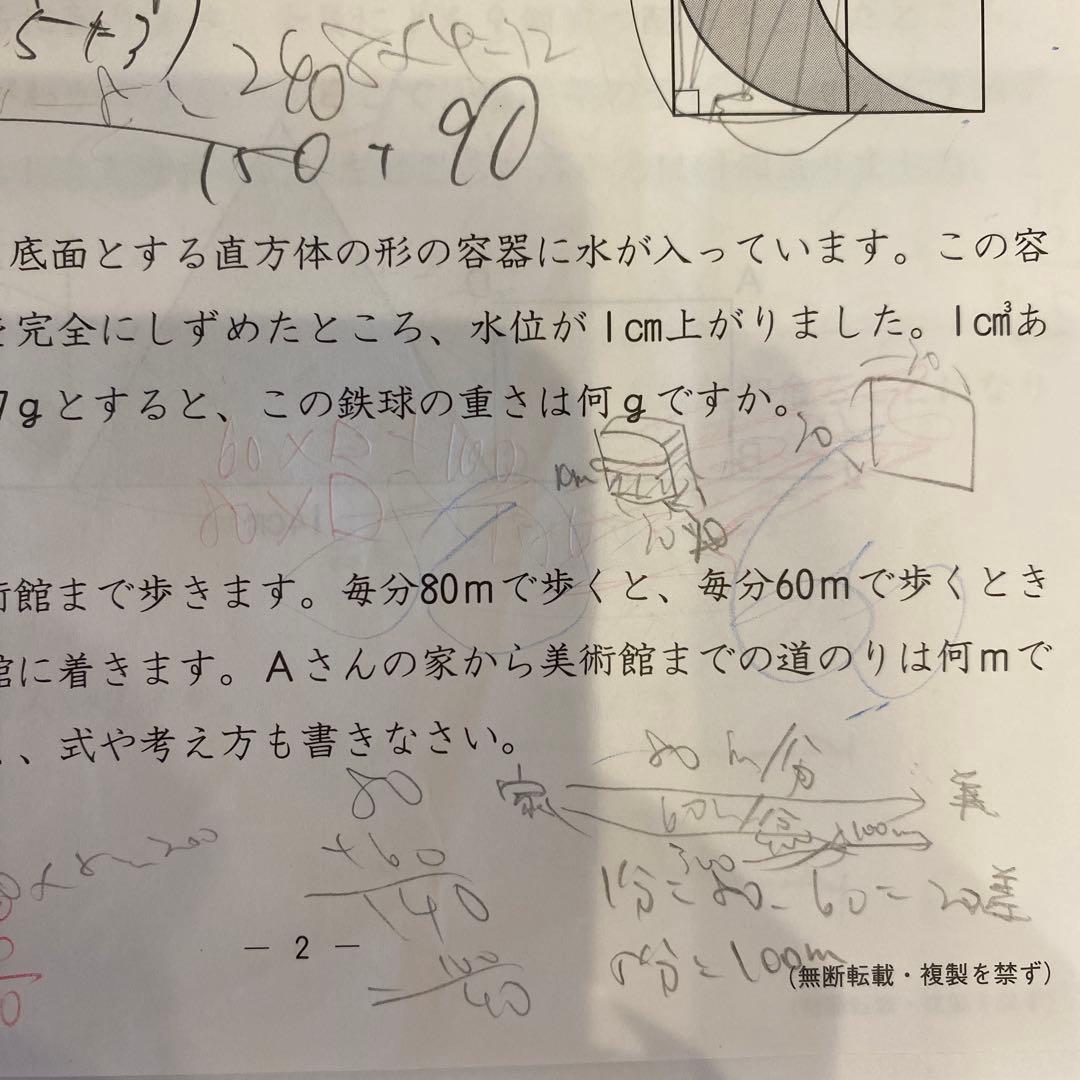 5+3)
240
8×4-12
150+90
底面とする直方体の形の容器に水が入っています。この容
完全にしずめたところ、水位が1cm上がりました。1cm³あ
7gとすると、この鉄球の重さは何gですか。
10
60×D+100
80×D
術館まで歩きます。毎分80mで歩くと、毎分60mで歩くとき
館に着きます。Aさんの家から美術館までの道のりは何mで
、式や考え方も書きなさい。
80m/分
80
家
美
60m/分
100m
+60
300
140
1分=80-60=20差
5分=100m
100
40
― 2 ―
(無断転載・複製を禁ず)